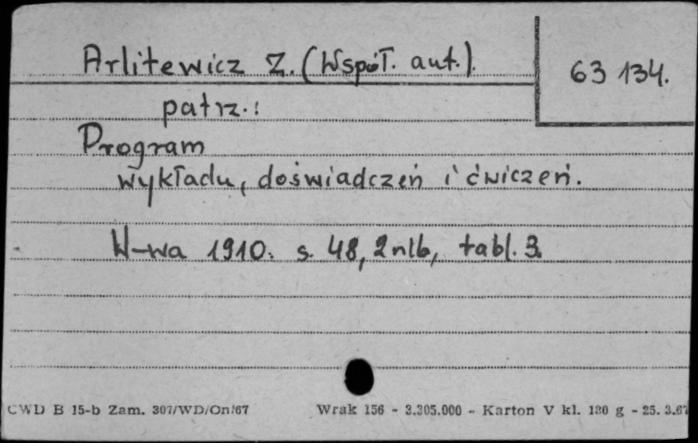 Arlitewicz Z. (Współ. aut.).
63 134.
patrz.:
Program
wykładu, doświadczeń i ćwiczeń.
W-wa 1910. s. 48, 2 nlb, tabl. 3.
CWD B 15-b Zam. 307/WD/On/67 Wrak 156 - 3.305.000 - Karton V kl. 180 g - 25. 3.67